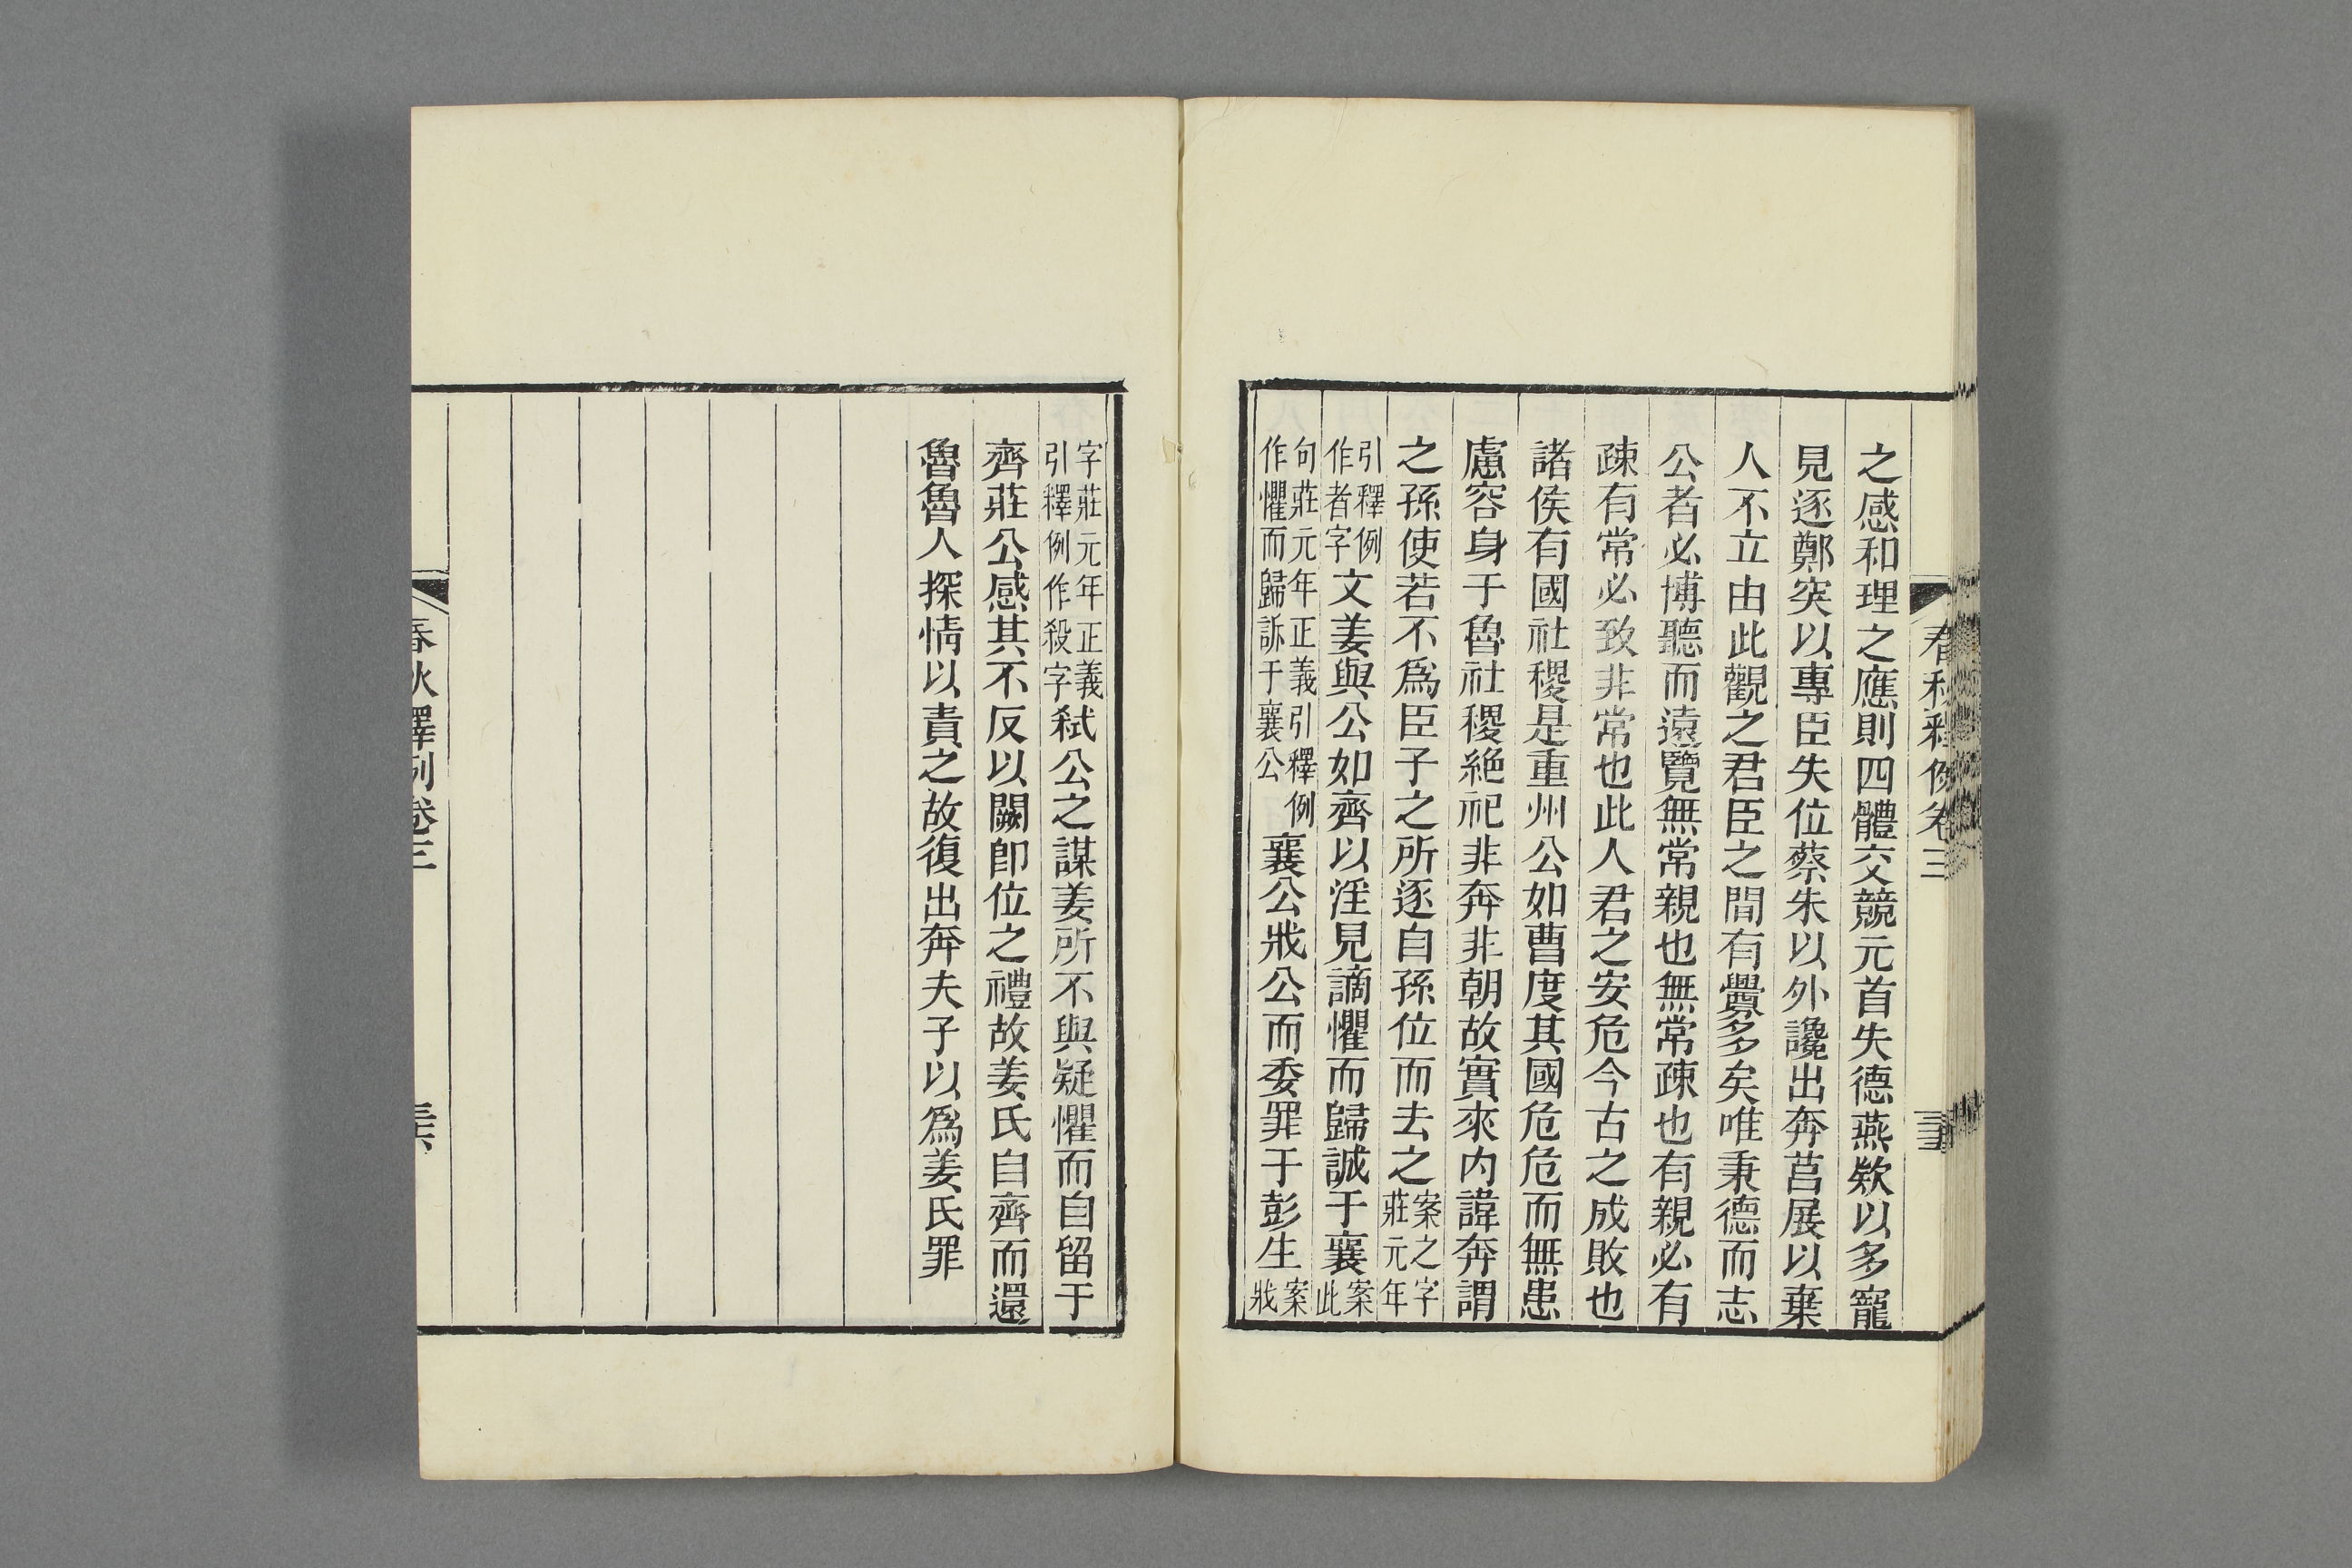 之感和理之應則四體交競元首失德燕欵以多寵
見逐鄭突以專臣失位蔡朱以外讒出奔莒展以棄
人不立由此觀之君臣之間有釁多矣唯秉德而志
公者必博聽而遠覽無常親也無常疎也有親必有
疎有常必致非常也此人君之安危今古之成敗也
諸侯有國社稷是重州公如曹度其國危危而無患
慮容身于魯社稷絶祀非奔非朝故實來内諱奔謂
之孫使若不爲臣子之所逐自孫位而去之案之字莊元年
引釋例作者字文姜與公如齊以淫見謫懼而歸誠于襄案此
句莊元年正義引釋例作懼而歸訴于襄公襄公戕公而委罪于彭生案戕
字莊元年正義引釋例作殺字弑公之謀姜所不與疑懼而自留于
齊莊公感其不反以闕卽位之禮故姜氏自齊而還
魯魯人探情以責之故復出奔夫子以爲姜氏罪
春秋釋例卷三